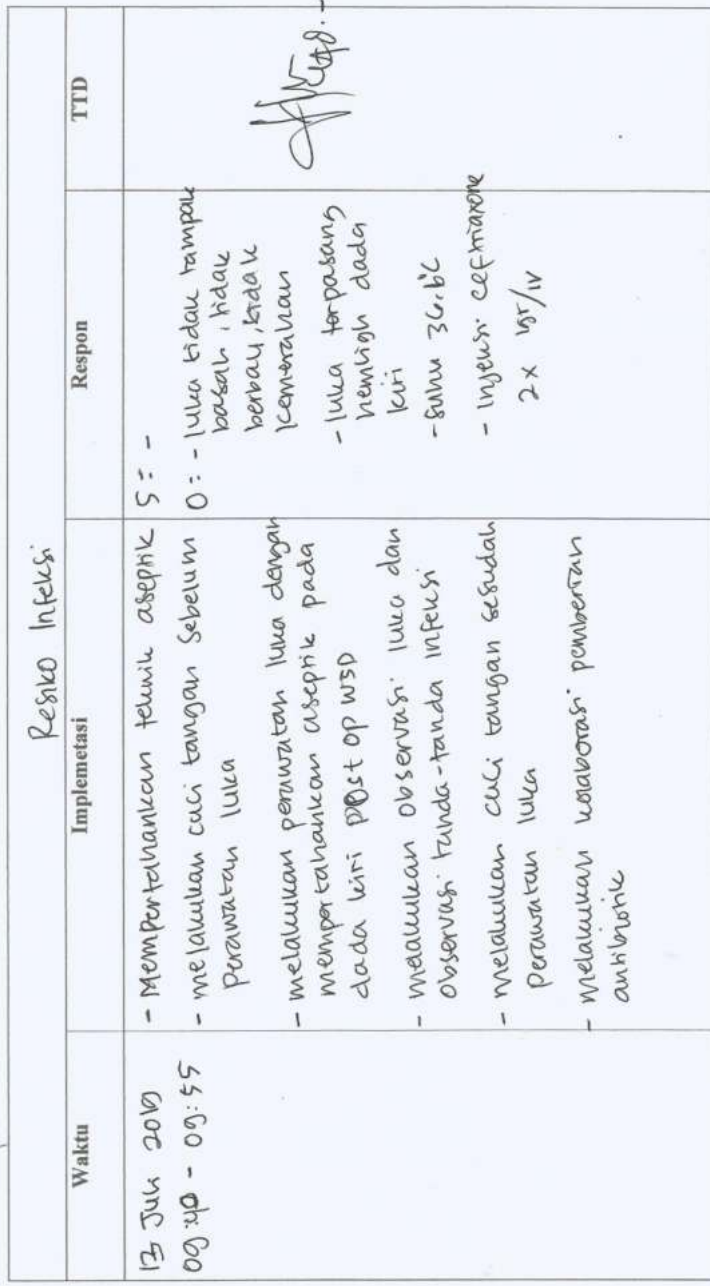 Resiko Infeksi
Waktu
Implemetasi
Respon
TTD
Juli 2019
09:40 - 09:55
- Mempertahankan teknik aseptik
- melakukan cuci tangan sebelum
perawatan luka
- melakukan perawatan luka dengan
mempertahankan aseptik pada
dada kiri post op WSD
- melakukan observasi luka dan
observasi tanda-tanda infeksi
- melakukan cuci tangan sesudah
perawatan luka
- melakukan kolaborasi pemberian
antibiotik
S = -
O = - luka tidak tampak
basah, tidak
berbau, tidak
kemerahan
- luka terpasang
dada
kiri
- Suhu 36.6°C
- Injeksi ceftriaxone
2x 1gr/IV